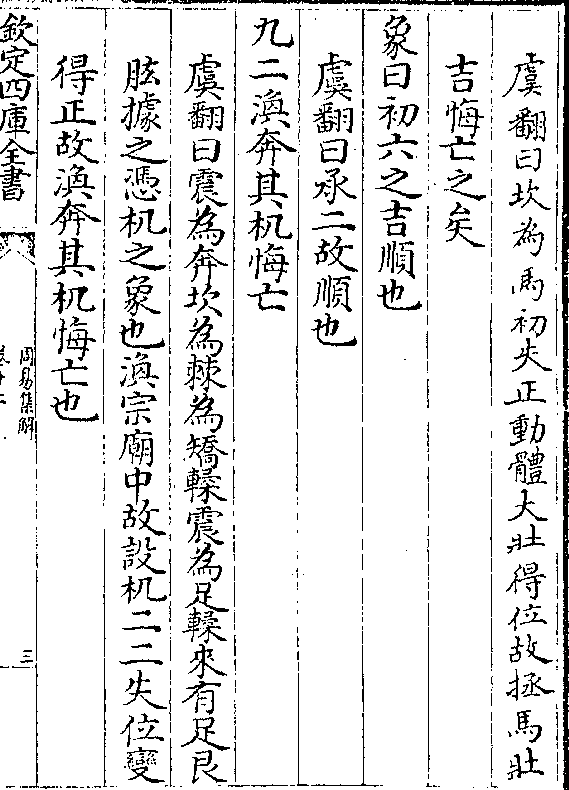 虞翻曰坎為馬初失正動體大壯得位故拯馬壯
吉悔亡之矣
象曰初六之吉順也
虞翻曰承二故順也
九二渙奔其机悔亡
虞翻曰震為奔坎為棘為矯輮震為足輮來有足艮
肱據之憑机之象也渙宗廟中故設机二二失位變
得正故渙奔其机悔亡也
欽定四庫全書
周易集解
三